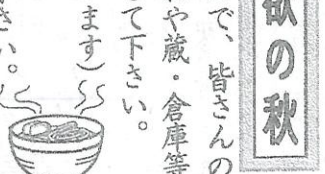 欲の秋
で、皆さんの
や蔵・倉庫等
て下さい。
ます)
さい。